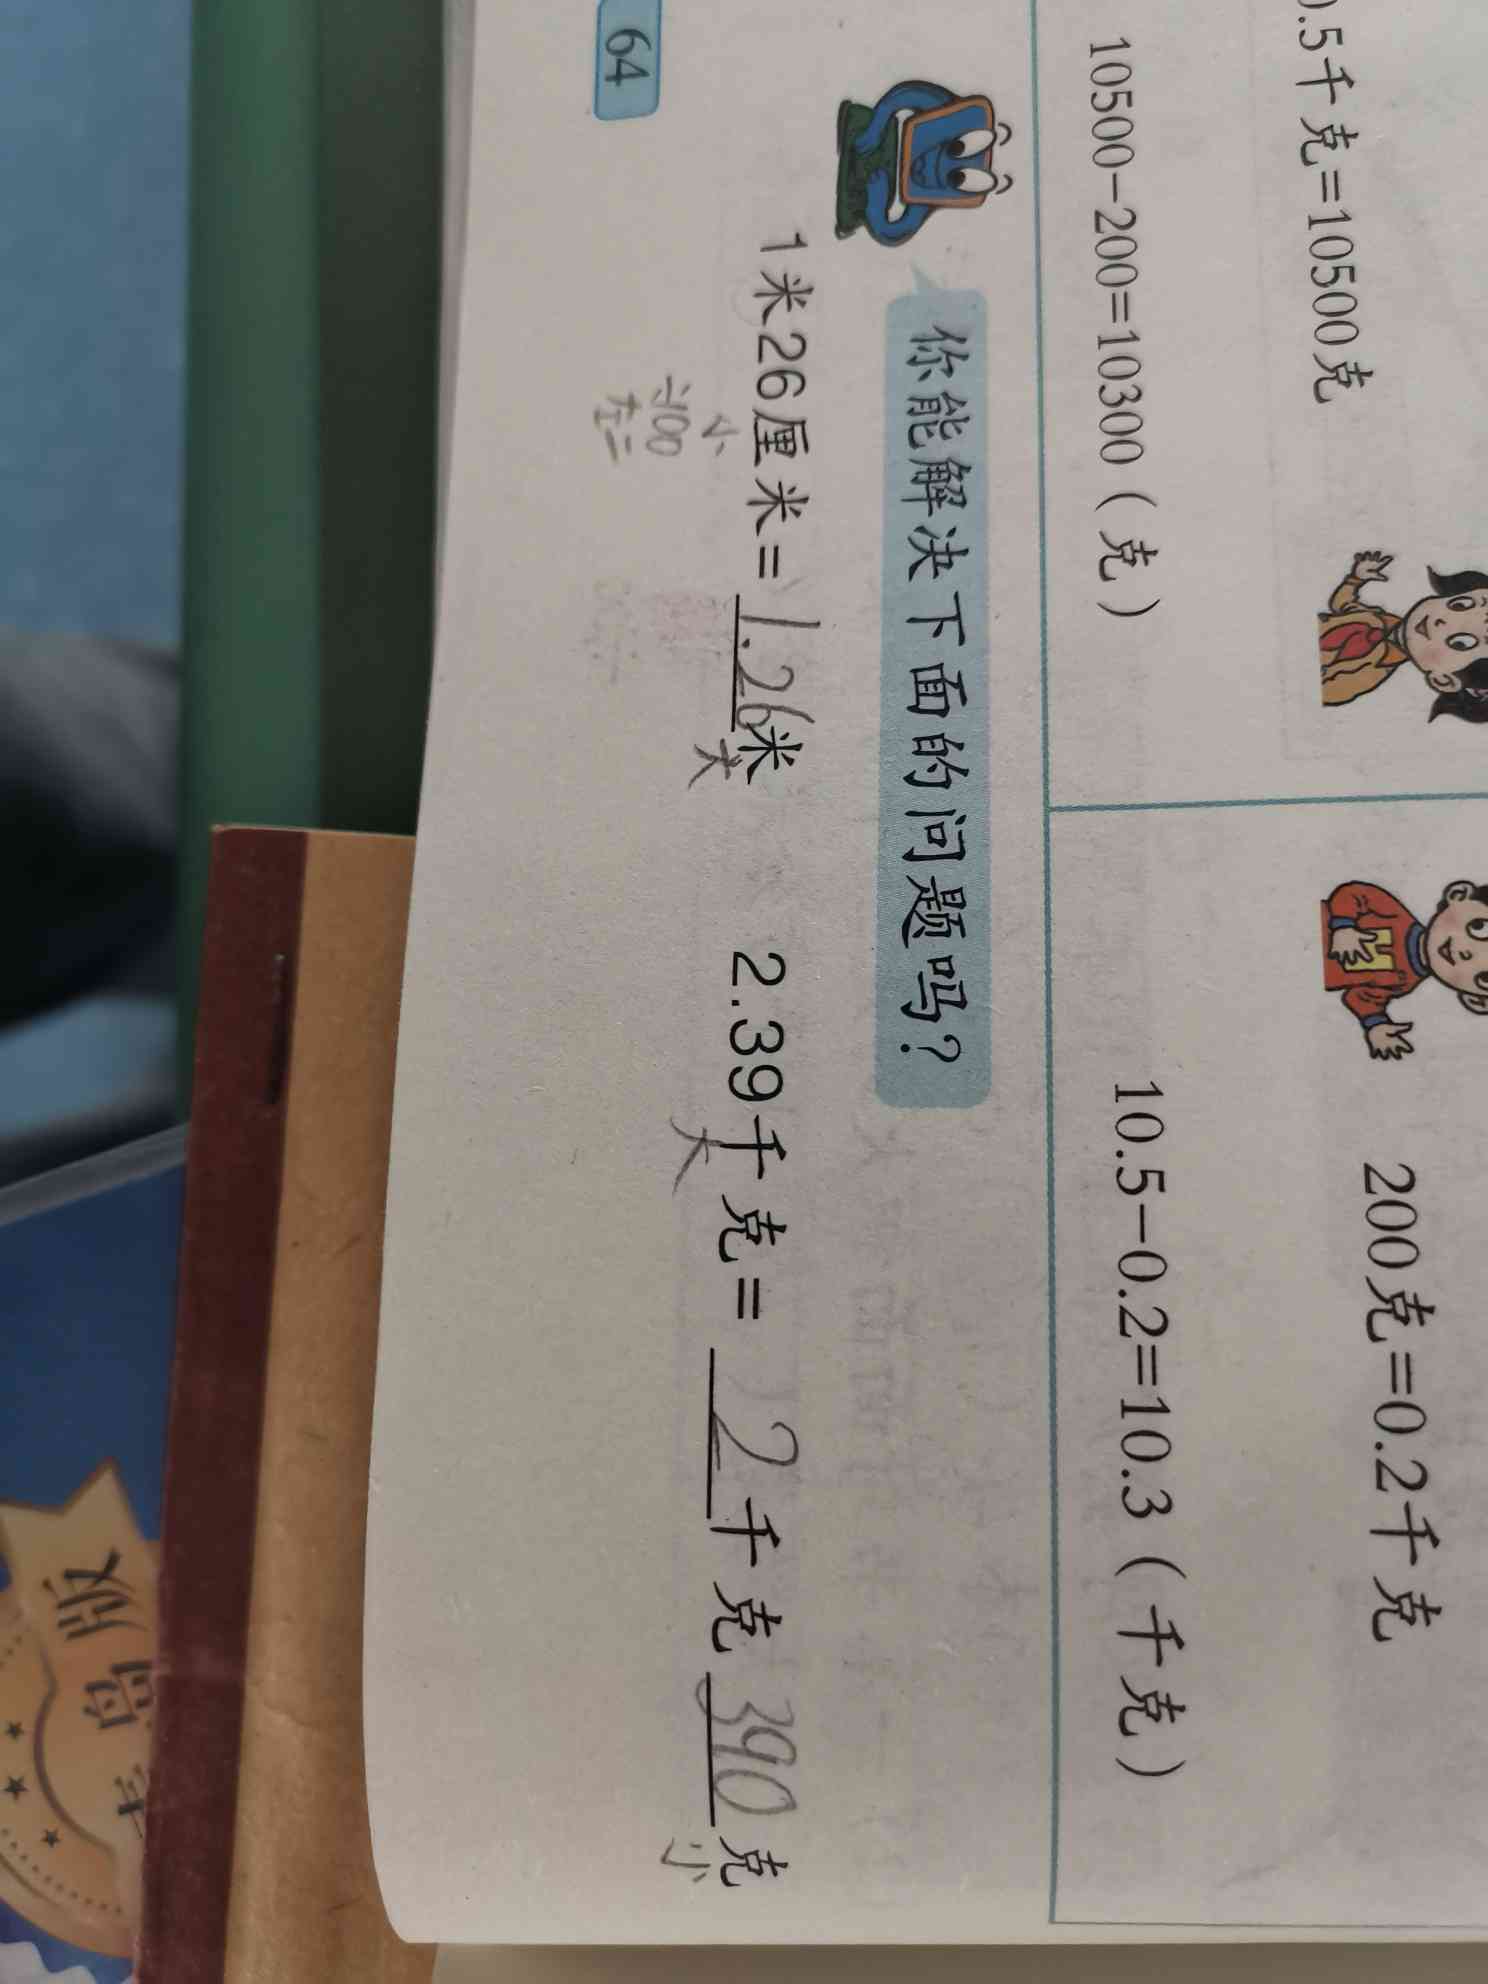 .5千克=10500克
200克=0.2千克
10500-200=10300（克）
10.5-0.2=10.3（千克）
你能解决下面的问题吗？
1米26厘米=1.26米
2.39千克=2千克390克
小
大
大
小
÷100
左二
64
版